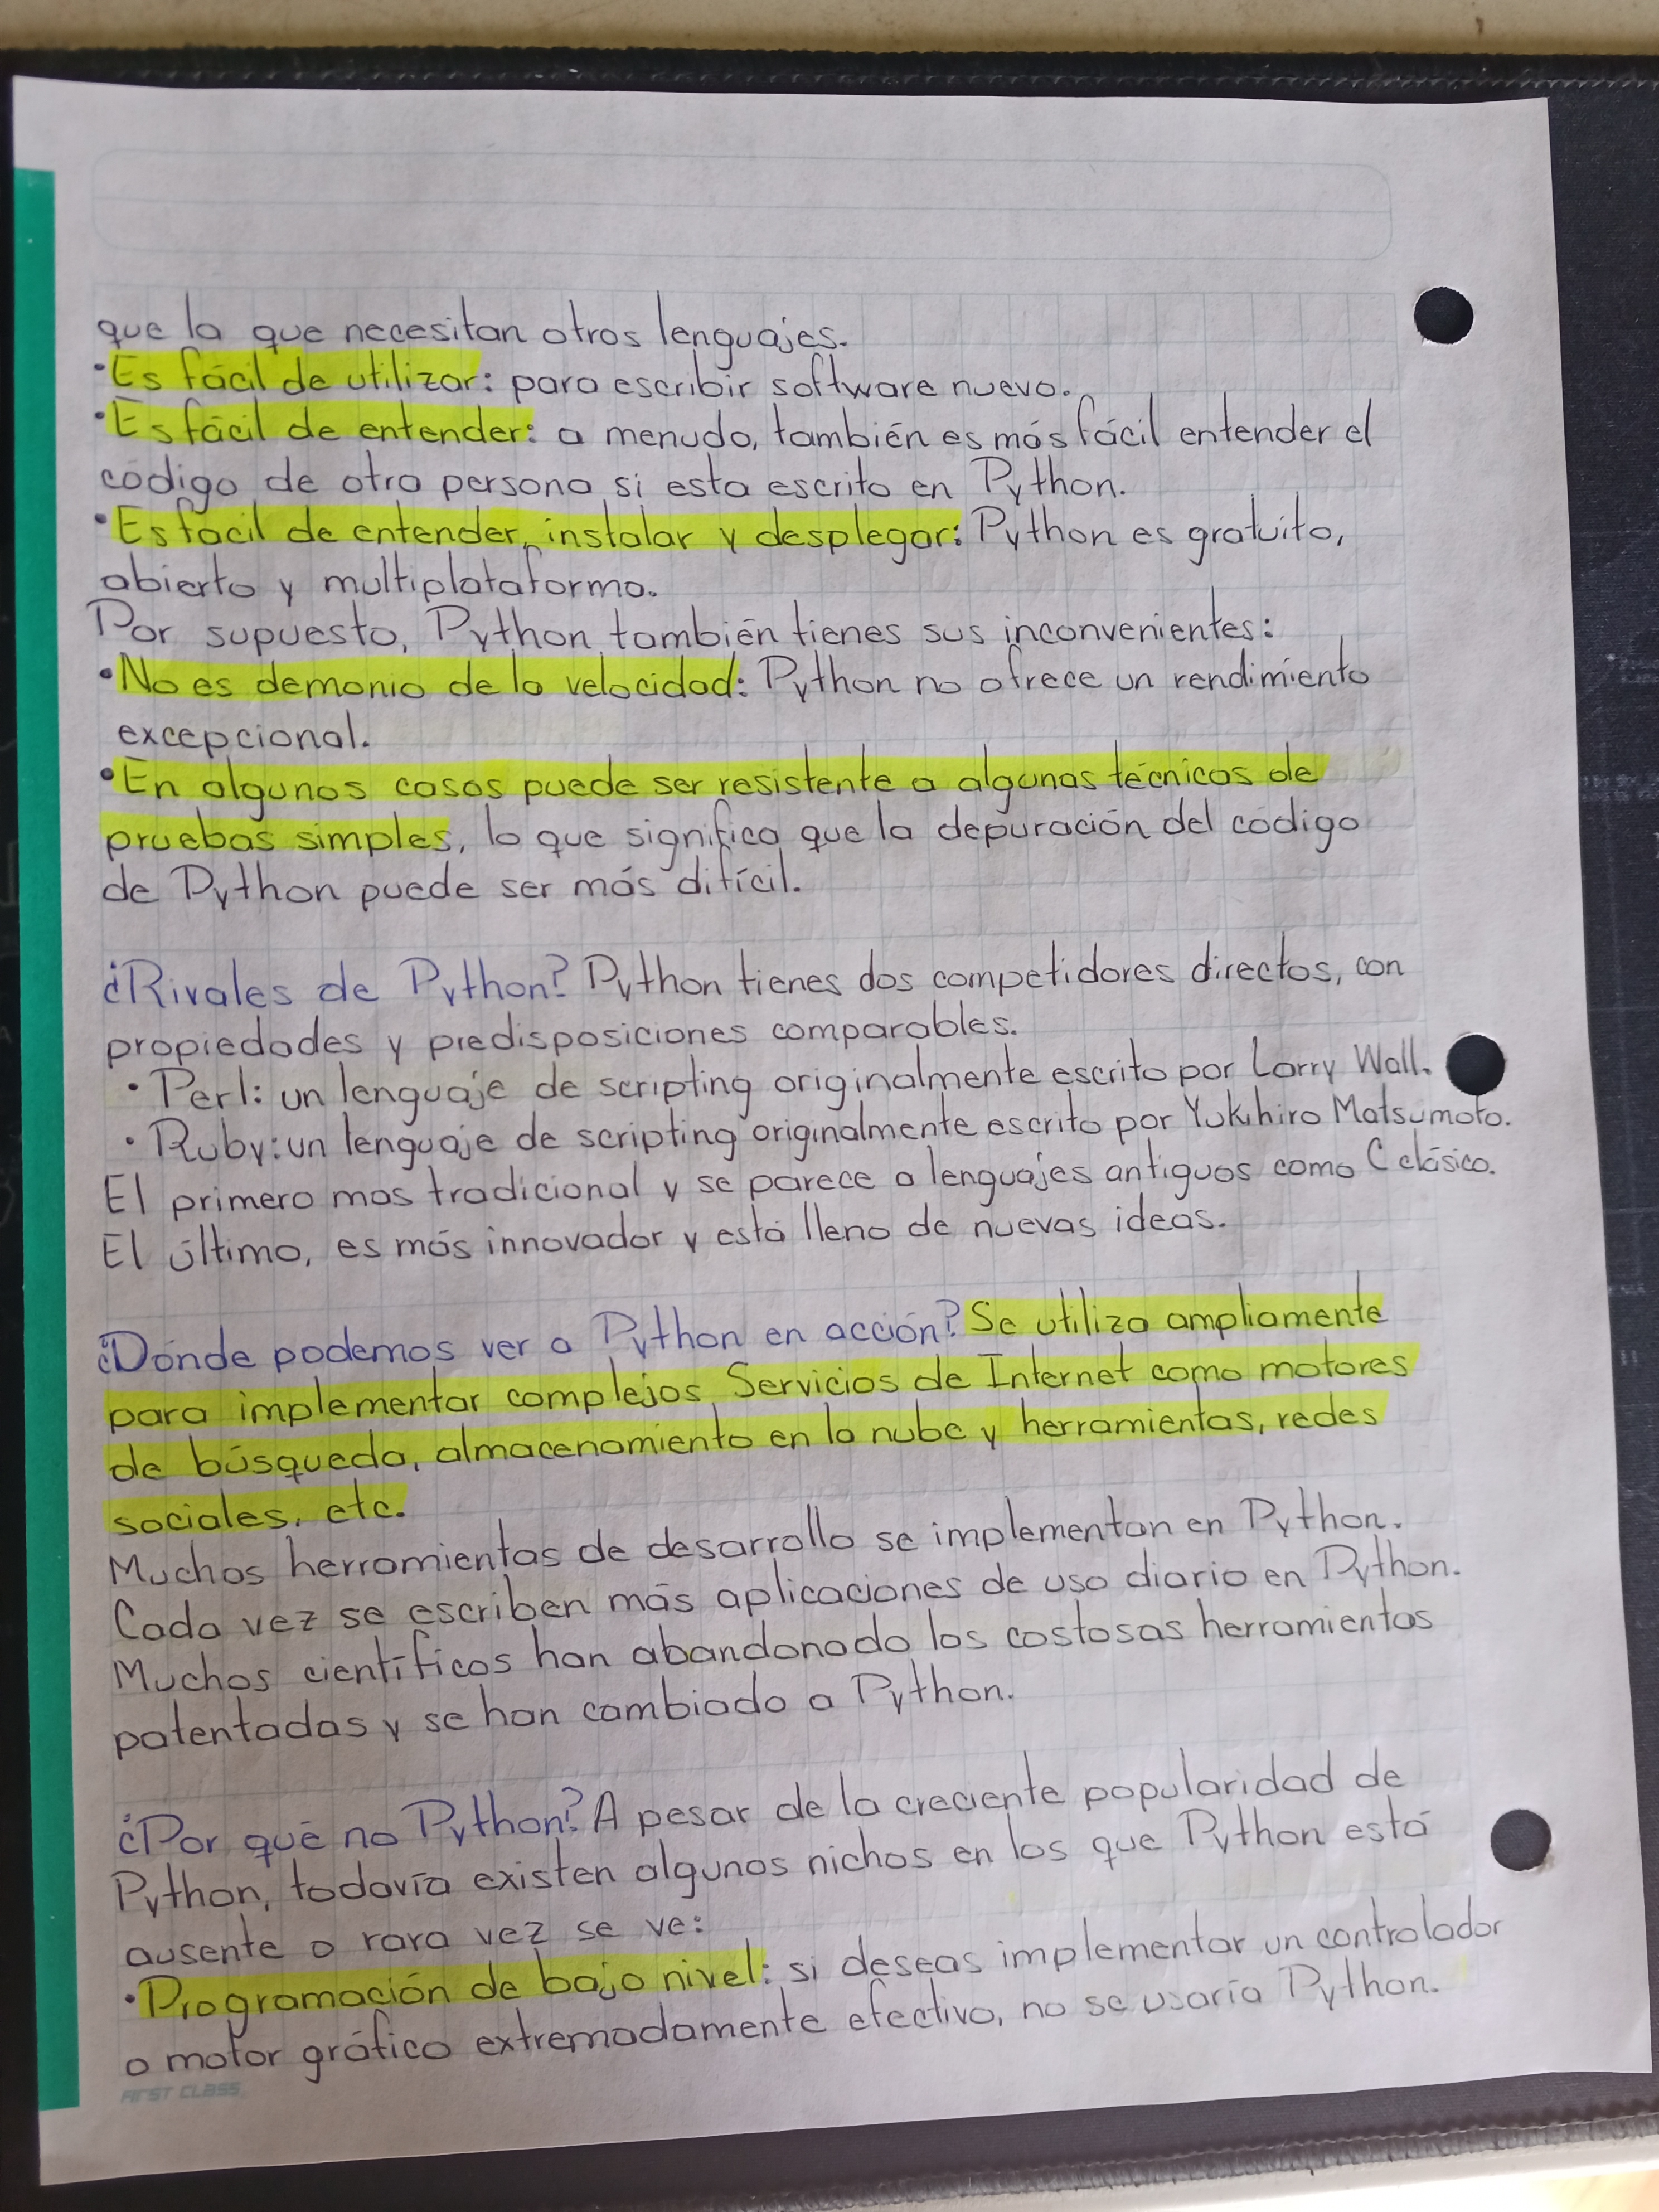 que la que necesitan otros lenguajes.
•Es fácil de utilizar: para escribir software nuevo.
•Es fácil de entender: a menudo, también es más fácil entender el
código de otra persona si esta escrito en Python.
•Es facil de entender, instalar y desplegar: Python es gratuito,
abierto y multiplataforma.
Por supuesto, Python también tienes sus inconvenientes:
•No es demonio de la velocidad: Python no ofrece un rendimiento
excepcional.
•En algunos casos puede ser resistente a algunas técnicas de
pruebas simples, lo que significa que la depuración del código
de Python puede ser más difícil.
¿Rivales de Python? Python tienes dos competidores directos, con
propiedades y predisposiciones comparables.
• Perl: un lenguaje de scripting originalmente escrito por Larry Wall.
• Ruby: un lenguaje de scripting originalmente escrito por Yukihiro Matsumoto.
El primero mas tradicional y se parece a lenguajes antiguos como C clásico.
El último, es más innovador y está lleno de nuevas ideas.
¿Dónde podemos ver a Python en acción? Se utiliza ampliamente
para implementar complejos Servicios de Internet como motores
de búsqueda, almacenamiento en la nube y herramientas, redes
sociales, etc.
Muchas herramientas de desarrollo se implementan en Python.
Cada vez se escriben más aplicaciones de uso diario en Python.
Muchos científicos han abandonado las costosas herramientas
patentadas y se han cambiado a Python.
¿Por qué no Python? A pesar de la creciente popularidad de
Python, todavía existen algunos nichos en los que Python está
ausente o rara vez se ve:
•Programación de bajo nivel: si deseas implementar un controlador
o motor gráfico extremadamente efectivo, no se usaría Python.
FIRST CLASS